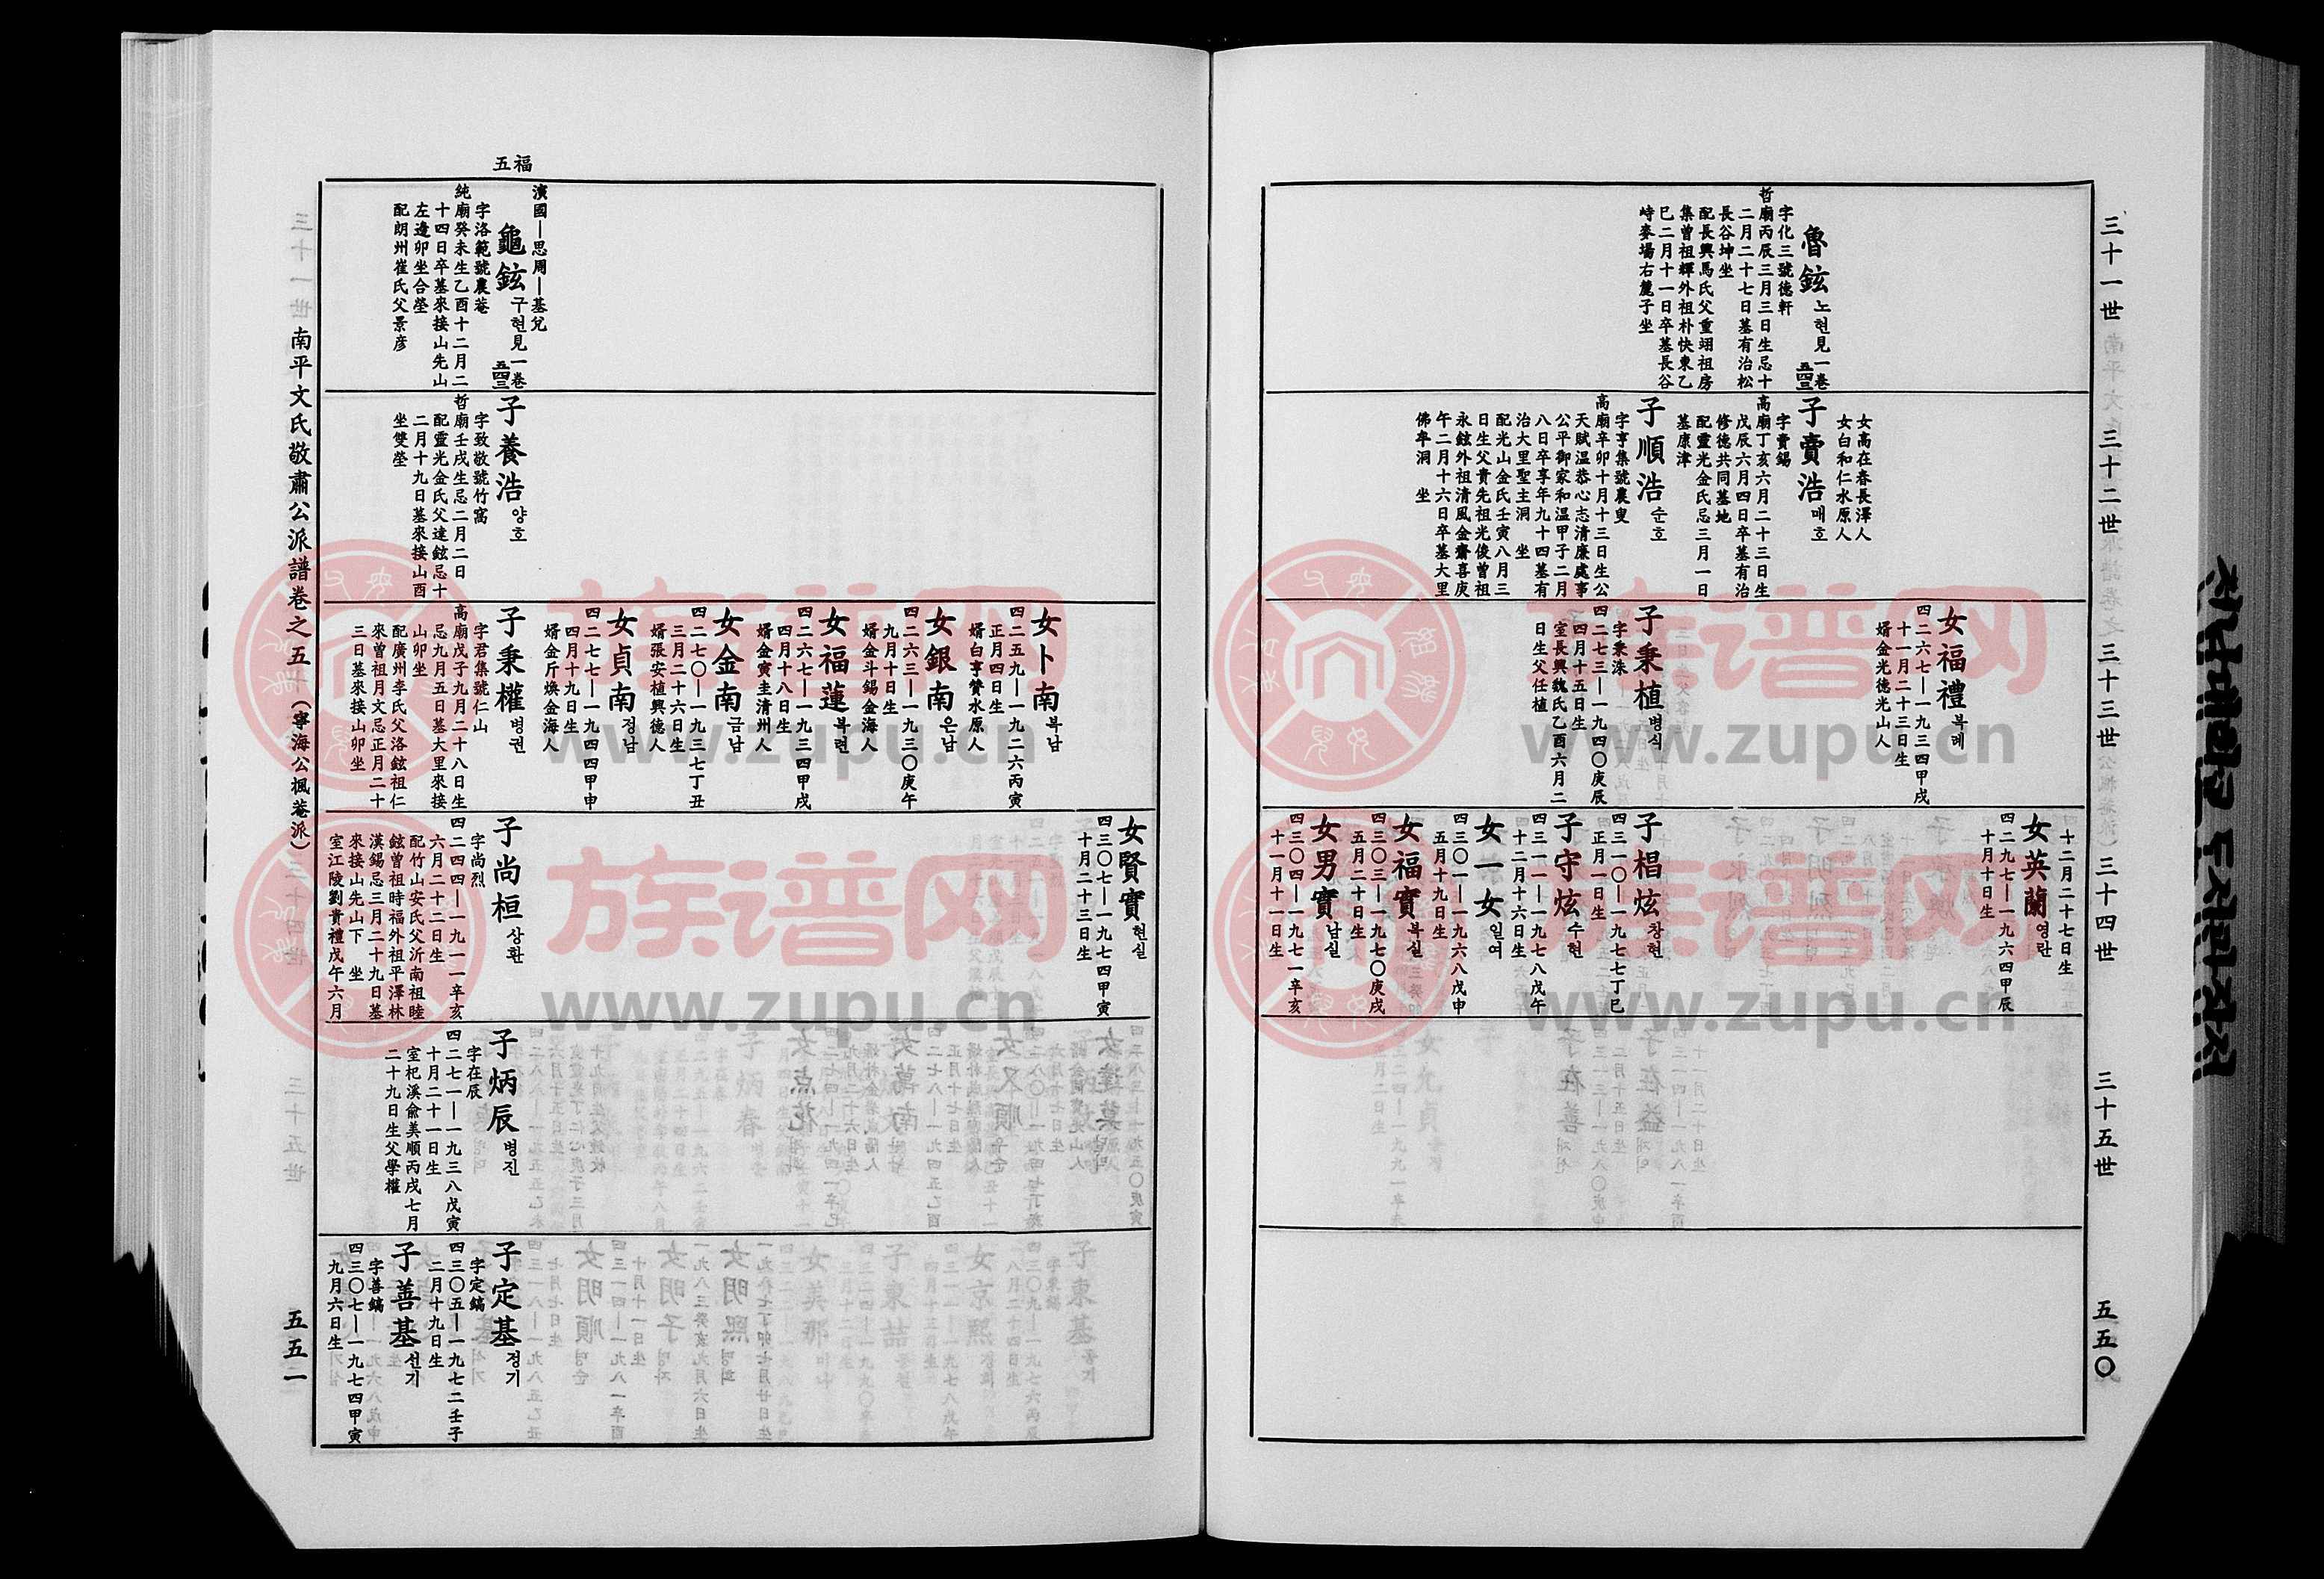 三十一世
三十二世
三十三世
三十四世
三十五世
五五〇
魯鉉 노현 見一卷
五四三
字化三號德軒
哲廟丙辰三月三日生忌十
二月二十七日墓有治松
長谷坤坐
配長興馬氏父重翊祖房
集曾祖輝外祖朴快東乙
巳二月十一日卒墓長谷
峙麥場右麓子坐
女高在春長澤人
女白和仁水原人
子賣浩 매호
字賣錫
高廟丁亥六月二十三日生
戊辰六月四日卒墓有治
修德共同墓地
配靈光金氏忌三月一日
墓康津
子順浩 순호
字亨集號農叟
高廟辛卯十月十三日生公
天賦温恭心志清廉處事
公平御家和温甲子二月
八日卒享年九十四墓有
治大里聖主洞 坐
配光山金氏壬寅八月三
日生父貴先祖光俊曾祖
永鉉外祖清風金齋喜庚
午二月十六日卒墓大里
佛牟洞 坐
女福禮 복례
四二六七―一九三四甲戌
十一月二十三日生
婿金光德光山人
子秉植 병식
字秉洙
四二七三―一九四〇庚辰
四月十五日生
室長興魏氏乙酉六月二
日生父任植
十二月二十七日生
女英蘭 영란
四二九七―一九六四甲辰
十月十日生
子椙炫 창현
四三一〇―一九七七丁巳
正月一日生
子守炫 수현
四三一一―一九七八戊午
十二月十六日生
女一女 일여
四三〇一―一九六八戊申
五月十九日生
女福實 복실
四三〇三―一九七〇庚戌
五月二十日生
女男實 남실
四三〇四―一九七一辛亥
十一月十一日生
五福
濱國―思周―基兌
龜鉉 구현 見一卷
五四三
字洛範號農菴
純廟癸未生乙酉十二月二
十四日卒墓來接山先山
左邊卯坐合塋
配朗州崔氏父景彦
子養浩 양호
字致敬號竹窩
哲廟壬戌生忌二月二日
配靈光金氏父達鉉忌十
二月十九日墓來接山酉
坐雙塋
女卜南 복남
四二五九―一九二六丙寅
正月四日生
婿白亨贊水原人
女銀南 은남
四二六三―一九三〇庚午
九月十日生
婿金斗錫金海人
女福蓮 복련
四二六七―一九三四甲戌
四月十八日生
婿金寅圭清州人
女金南 금남
四二七〇―一九三七丁丑
三月二十六日生
婿張安植興德人
女貞南 정남
四二七七―一九四四甲申
四月十九日生
婿金斤煥金海人
子秉權 병권
字君集號仁山
高廟戊子九月二十八日生
忌九月五日墓大里來接
山卯坐
配廣州李氏父洛鉉祖仁
來曾祖月文忌正月二十
三日墓來接山卯坐
女賢實 현실
四三〇七―一九七四甲寅
十月二十三日生
子尚桓 상환
字尚烈
四二四四―一九一一辛亥
六月二十二日生
配竹山安氏父沂南祖睦
鉉曾祖時福外祖平澤林
漢錫忌三月二十九日墓
來接山先山下 坐
室江陵劉貴禮戊午六月
子炳辰 병진
字在辰
四二七一―一九三八戊寅
十月二十一日生
室杞溪俞美順丙戌七月
二十九日生父學權
子定基 정기
字定鎬
四三〇五―一九七二壬子
二月十九日生
子善基 선기
字善鎬
四三〇七―一九七四甲寅
九月六日生
南平文氏敬肅公派譜卷之五 (寧海公楓菴派)
五五一
族谱网
www.zupu.cn
族谱网
www.zupu.cn
族谱网
www.zupu.cn
族谱网
www.zupu.cn